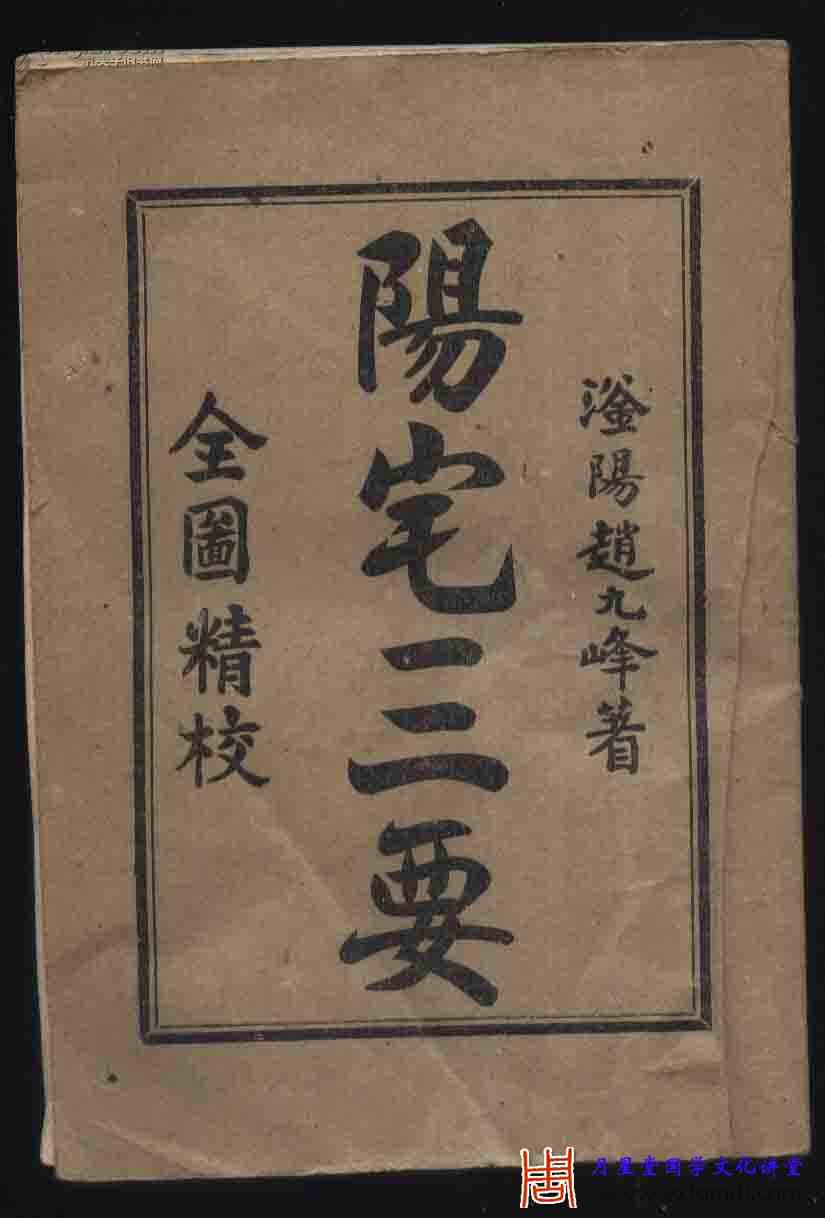 滏陽趙九峰著
陽宅三要
全圖精校
月星堂国学文化讲堂